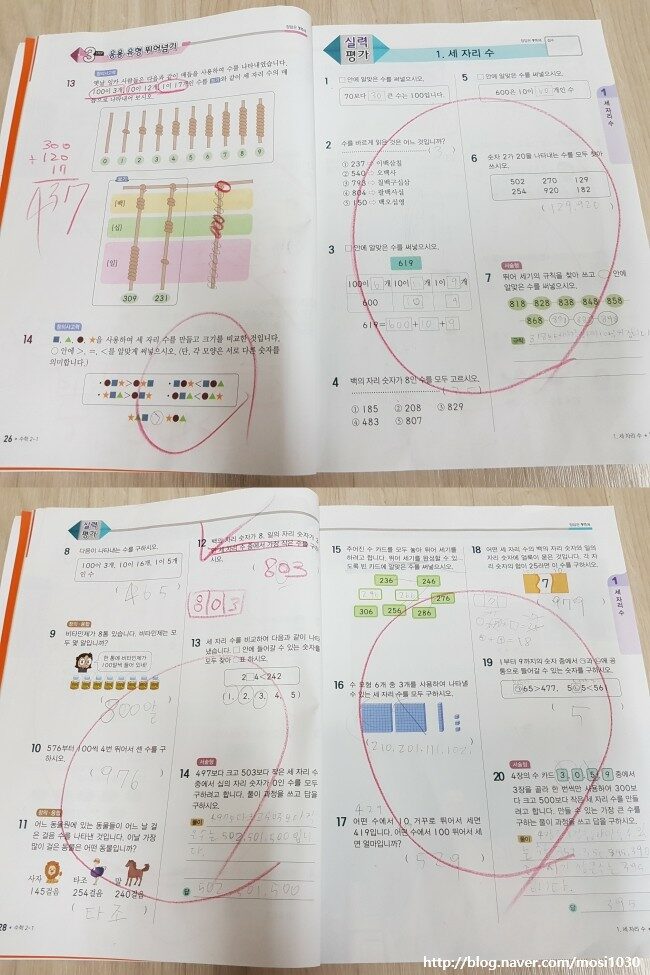 3 응용 유형 뛰어넘기
창의사고력
13 옛날 잉카 사람들은 다음과 같이 매듭을 사용하여 수를 나타내었습니다.
100이 3개, 10이 12개, 1이 17개인 수를 보기와 같이 세 자리 수의 매
듭으로 나타내어 보시오.
0 1 2 3 4 5 6 7 8 9
300
+120
17
437
보기
[백]
[십]
[일]
309 231
창의사고력
14 ■, ▲, ●, ★을 사용하여 세 자리 수를 만들고 크기를 비교한 것입니다.
○ 안에 >, =, <를 알맞게 써넣으시오. (단, 각 모양은 서로 다른 숫자를
의미합니다.)
26 • 수학 2-1
실력
평가
1. 세 자리 수
점수
1 □ 안에 알맞은 수를 써넣으시오.
70보다 30 큰 수는 100입니다.
2 수를 바르게 읽은 것은 어느 것입니까?
(3)
① 237 ⇨ 이백삼칠
② 540 ⇨ 오백사
③ 793 ⇨ 칠백구십삼
④ 804 ⇨ 팔백사일
⑤ 150 ⇨ 백오십영
3 □ 안에 알맞은 수를 써넣으시오.
619
100이 6개 10이 1개 1이 9개
600 10 9
619=600+10+9
4 백의 자리 숫자가 8인 수를 모두 고르시오.
① 185 ② 208 ③ 829
④ 483 ⑤ 807
5 □ 안에 알맞은 수를 써넣으시오.
600은 10이 60개인 수
6 숫자 2가 20을 나타내는 수를 모두 찾아
쓰시오.
502 270 129
254 920 182
(129, 920)
서술형
7 뛰어 세기의 규칙을 찾아 쓰고 ○ 안에
알맞은 수를 써넣으시오.
818 828 838 848 858
868
규칙
1
세 자리 수
1. 세 자리 수
실력
평가
8 다음이 나타내는 수를 구하시오.
100이 3개, 10이 16개, 1이 5개
인 수
(465)
창의·융합
9 비타민제가 8통 있습니다. 비타민제는 모
두 몇 알입니까?
한 통에 비타민제가
100알씩 들어 있네!
800알
10 576부터 100씩 4번 뛰어서 센 수를 구
하시오.
(976)
창의·융합
11 어느 동물원에 있는 동물들이 어느 날 걸
은 걸음 수를 나타낸 것입니다. 이날 가장
많이 걸은 동물은 어떤 동물입니까?
사자 타조 말
145걸음 254걸음 240걸음
(타조)
28 • 수학 2-1
12 백의 자리 숫자가 8, 일의 자리 숫자가
803
803
13 세 자리 수를 비교하여 다음과 같이 나타
냈습니다. □ 안에 들어갈 수 있는 숫자를
모두 찾아 ○표 하시오.
2□4<242
(1, 2, 3, 4, 5)
서술형
14 497보다 크고 503보다 작은 세 자리 수
중에서 십의 자리 숫자가 0인 수를 모두
구하려고 합니다. 풀이 과정을 쓰고 답을
구하시오.
풀이
답 502, 501, 500
15 주어진 수 카드를 모두 놓아 뛰어 세기를
하려고 합니다. 뛰어 세기를 완성할 수 있
도록 빈 카드에 알맞은 수를 써넣으시오.
236 246
276
306 256 286
16 수 모형 6개 중 3개를 사용하여 나타낼
수 있는 세 자리 수를 모두 구하시오.
(210, 201, 111, 102)
17 어떤 수에서 10씩 거꾸로 뛰어서 세면
419입니다. 어떤 수에서 100 뛰어서 세
면 얼마입니까?
(529)
18 어떤 세 자리 수의 백의 자리 숫자와 일의
자리 숫자에 얼룩이 묻은 것입니다.
7
979
19 1부터 9까지의 숫자 중에서
통으로 들어갈 수 있는 숫자를 구하시오.
65>477, 5 5<56
5
서술형
20 4장의 수 카드 3 0 5 9 중에서
3장을 골라 한 번씩만 사용하여 300보
다 크고 500보다 작은 세 자리 수를 만들
려고 합니다. 만들 수 있는 가장 큰 수를
구하는 풀이 과정을 쓰고 답을 구하시오.
풀이
답 395
1
세 자리 수
1. 세 자리 수
http://blog.naver.com/mosi1030